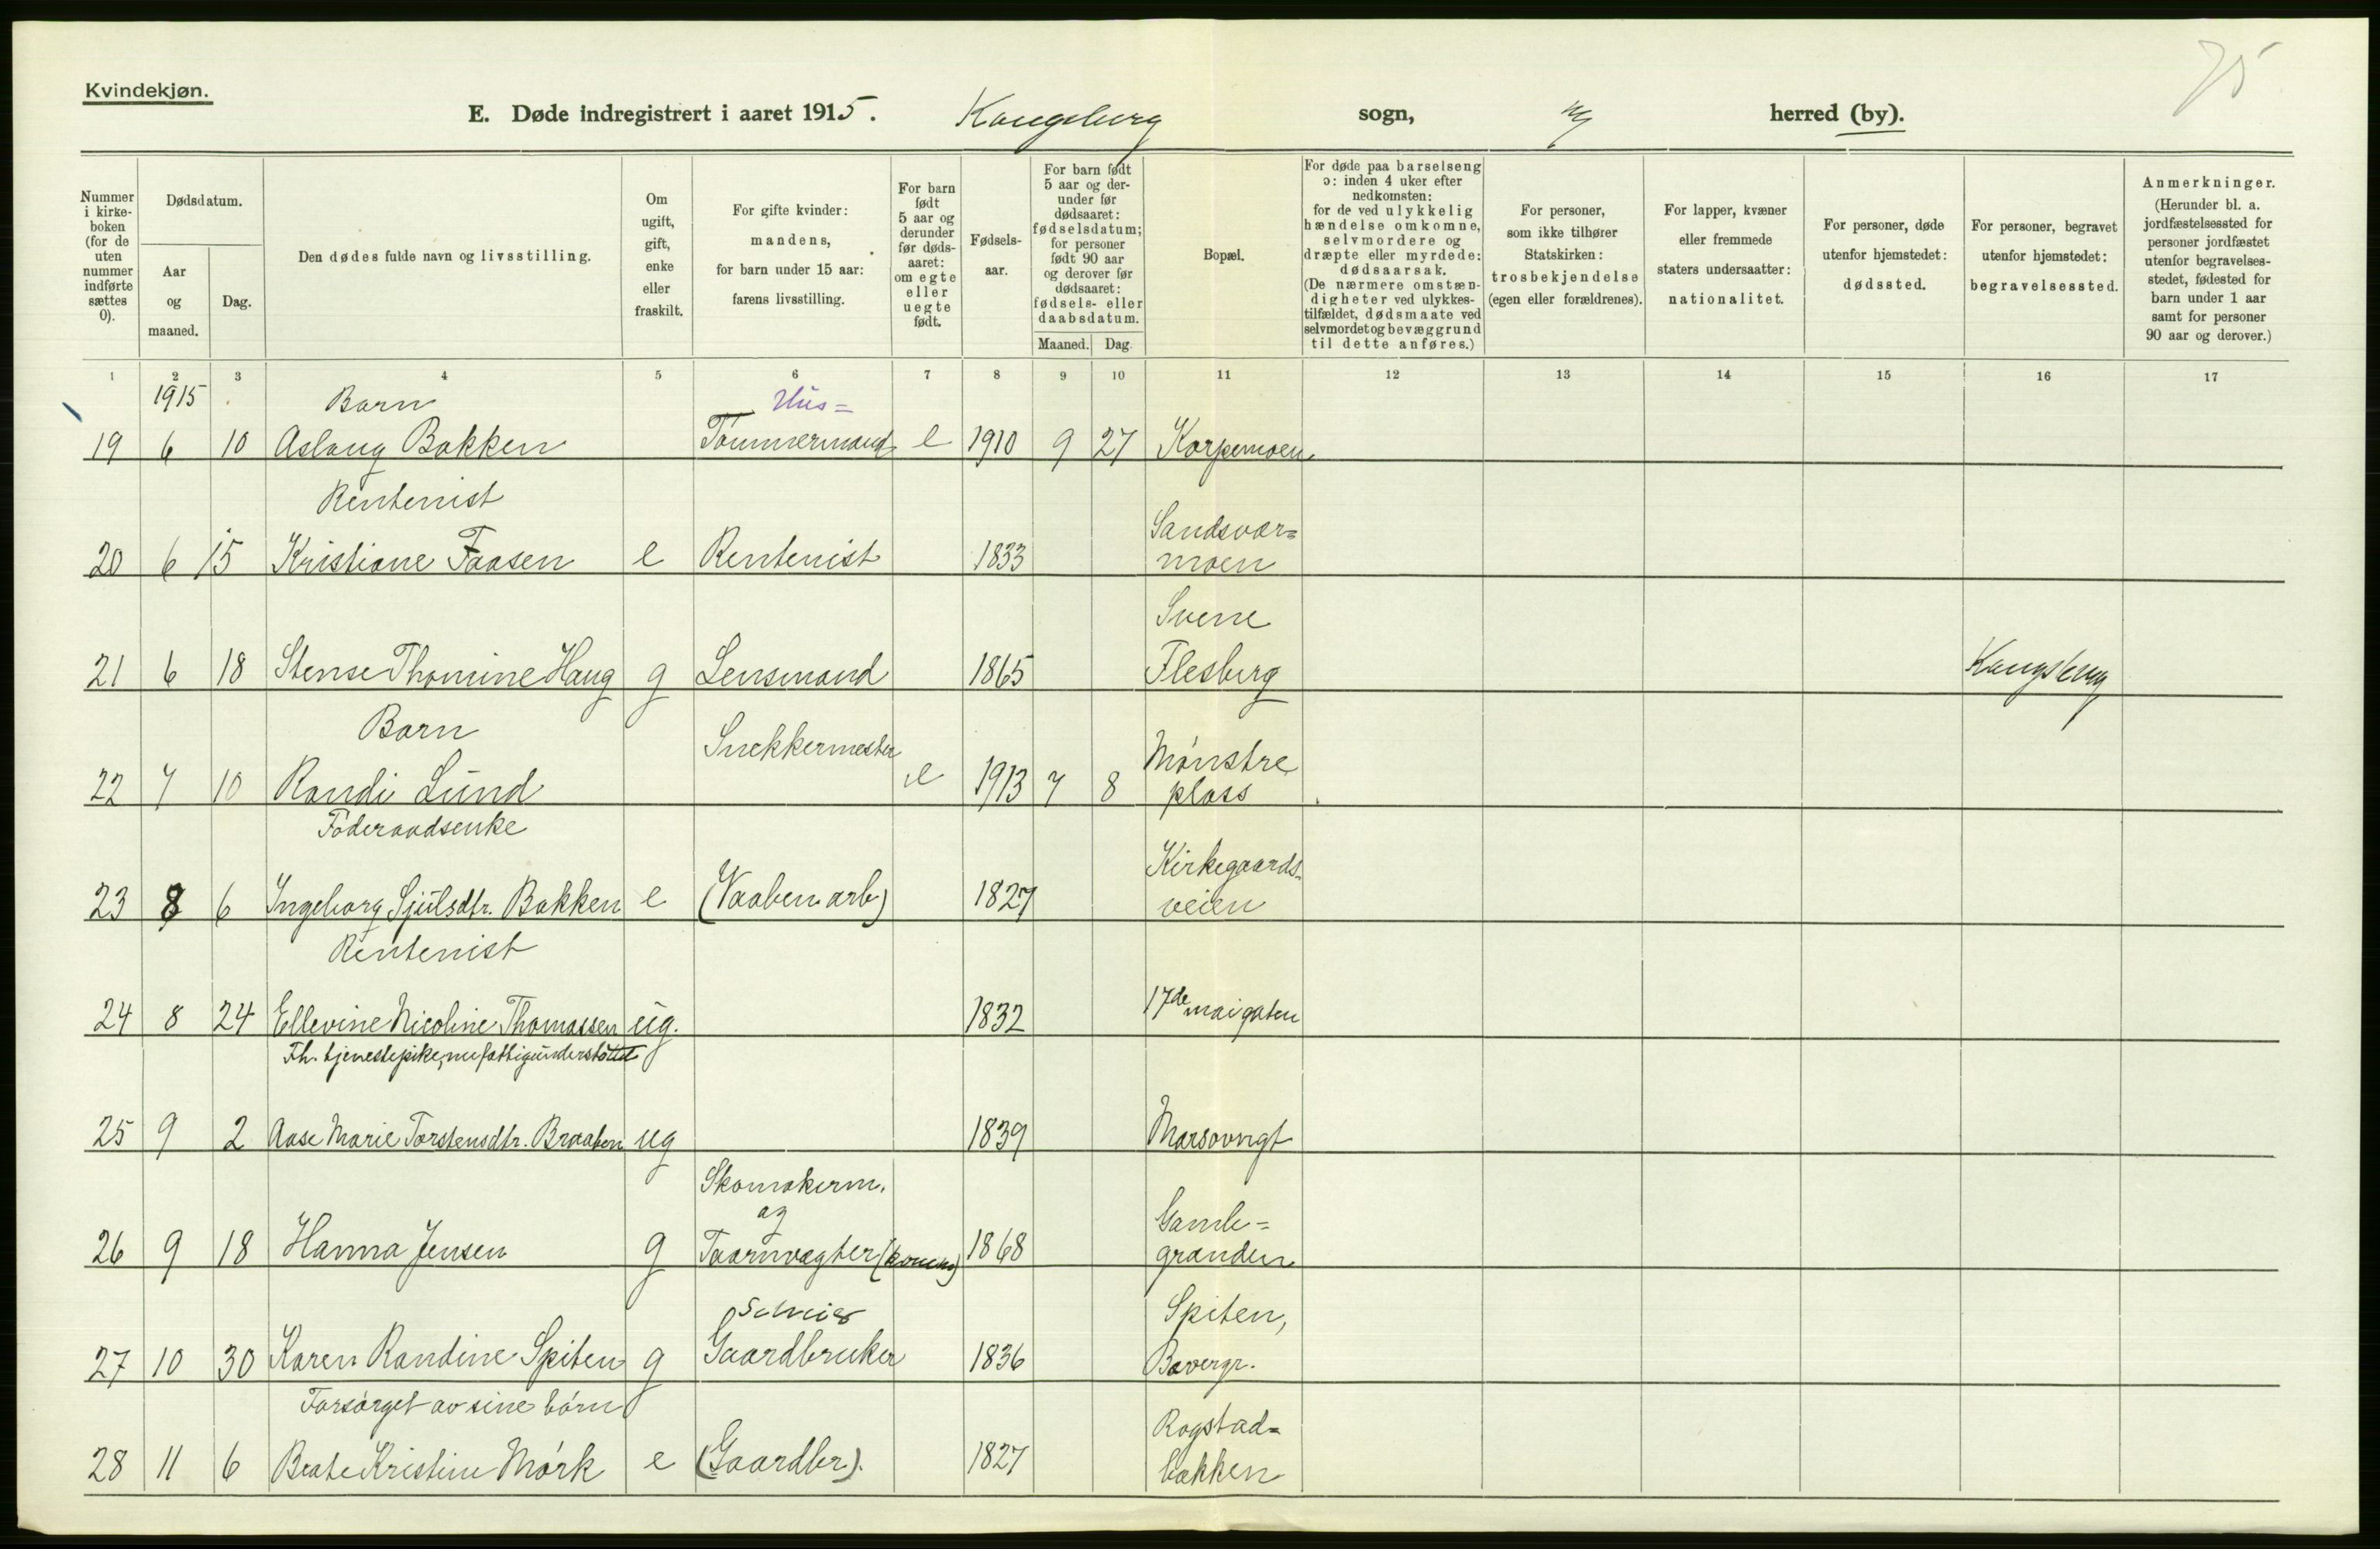 75
Kvindekjøn.
E. Døde indregistrert i aaret 1915. Kongsberg sogn, herred (by).
Nummer i kirkeboken (for de uten nummer indførte sættes 0).
Dødsdatum.
Aar og maaned.
Dag.
Den dødes fulde navn og livsstilling.
Om ugift, gift, enke eller fraskilt.
For gifte kvinder: mandens, for barn under 15 aar: farens livsstilling.
For barn født 5 aar og derunder før dødsaaret: om egte eller uegte født.
Fødselsaar.
For barn født 5 aar og derunder før dødsaaret: fødselsdatum; for personer født 90 aar og derover før dødsaaret: fødsels- eller daabsdatum.
Maaned. Dag.
Bopæl.
For døde paa barselseng ɔ: inden 4 uker efter nedkomsten: for de ved ulykkelig hændelse omkomne, selvmordere og dræpte eller myrdede: dødsaarsak. (De nærmere omstændigheter ved ulykkestilfældet, dødsmaate ved selvmordet og bevæggrund til dette anføres.)
For personer, som ikke tilhører Statskirken: trosbekjendelse (egen eller forældrenes).
For lapper, kvæner eller fremmede staters undersaatter: nationalitet.
For personer, døde utenfor hjemstedet: dødssted.
For personer, begravet utenfor hjemstedet: begravelsessted.
Anmerkninger. (Herunder bl. a. jordfæstelsessted for personer jordfæstet utenfor begravelsesstedet, fødested for barn under 1 aar samt for personer 90 aar og derover.)
1 2 3 4 5 6 7 8 9 10 11 12 13 14 15 16 17
1915 Barn Hus=
19 6 10 Aslaug Bakken Tømmermand e 1910 9 27 Korpemoen
Rentenist Sandsvær=
20 6 15 Kristiane Faasen e Rentenist 1833 moen
Svene
21 6 18 Stense Thomine Haug g Lensmand 1865 Flesberg Kongsberg
Barn Snekkermester Mønstre
22 7 10 Randi Lund e 1913 7 8 plass
Føderaadsenke Kirkegaards-
23 8 6 Ingeborg Sjulsdtr. Bakken e (Vaabenarb) 1827 veien
Rentenist
24 8 24 Ellevine Nicoline Thomassen ug. 1832 17de maigaten
Fh. tjenestepike, nu fattigunderstøttet
25 9 2 Aase Marie Torstensdtr. Braaten ug 1839
Skomakerm.
og Gamle=
26 9 18 Hanna Jensen g Taarnvagter 1868 granden
Spiten,
27 10 30 Karen Randine Spiten g Gaardbruker 1836
Forsørget av sine børn Rogstad=
28 11 6 Beate Kristine Mørk e (Gaardbr). 1827 bakken